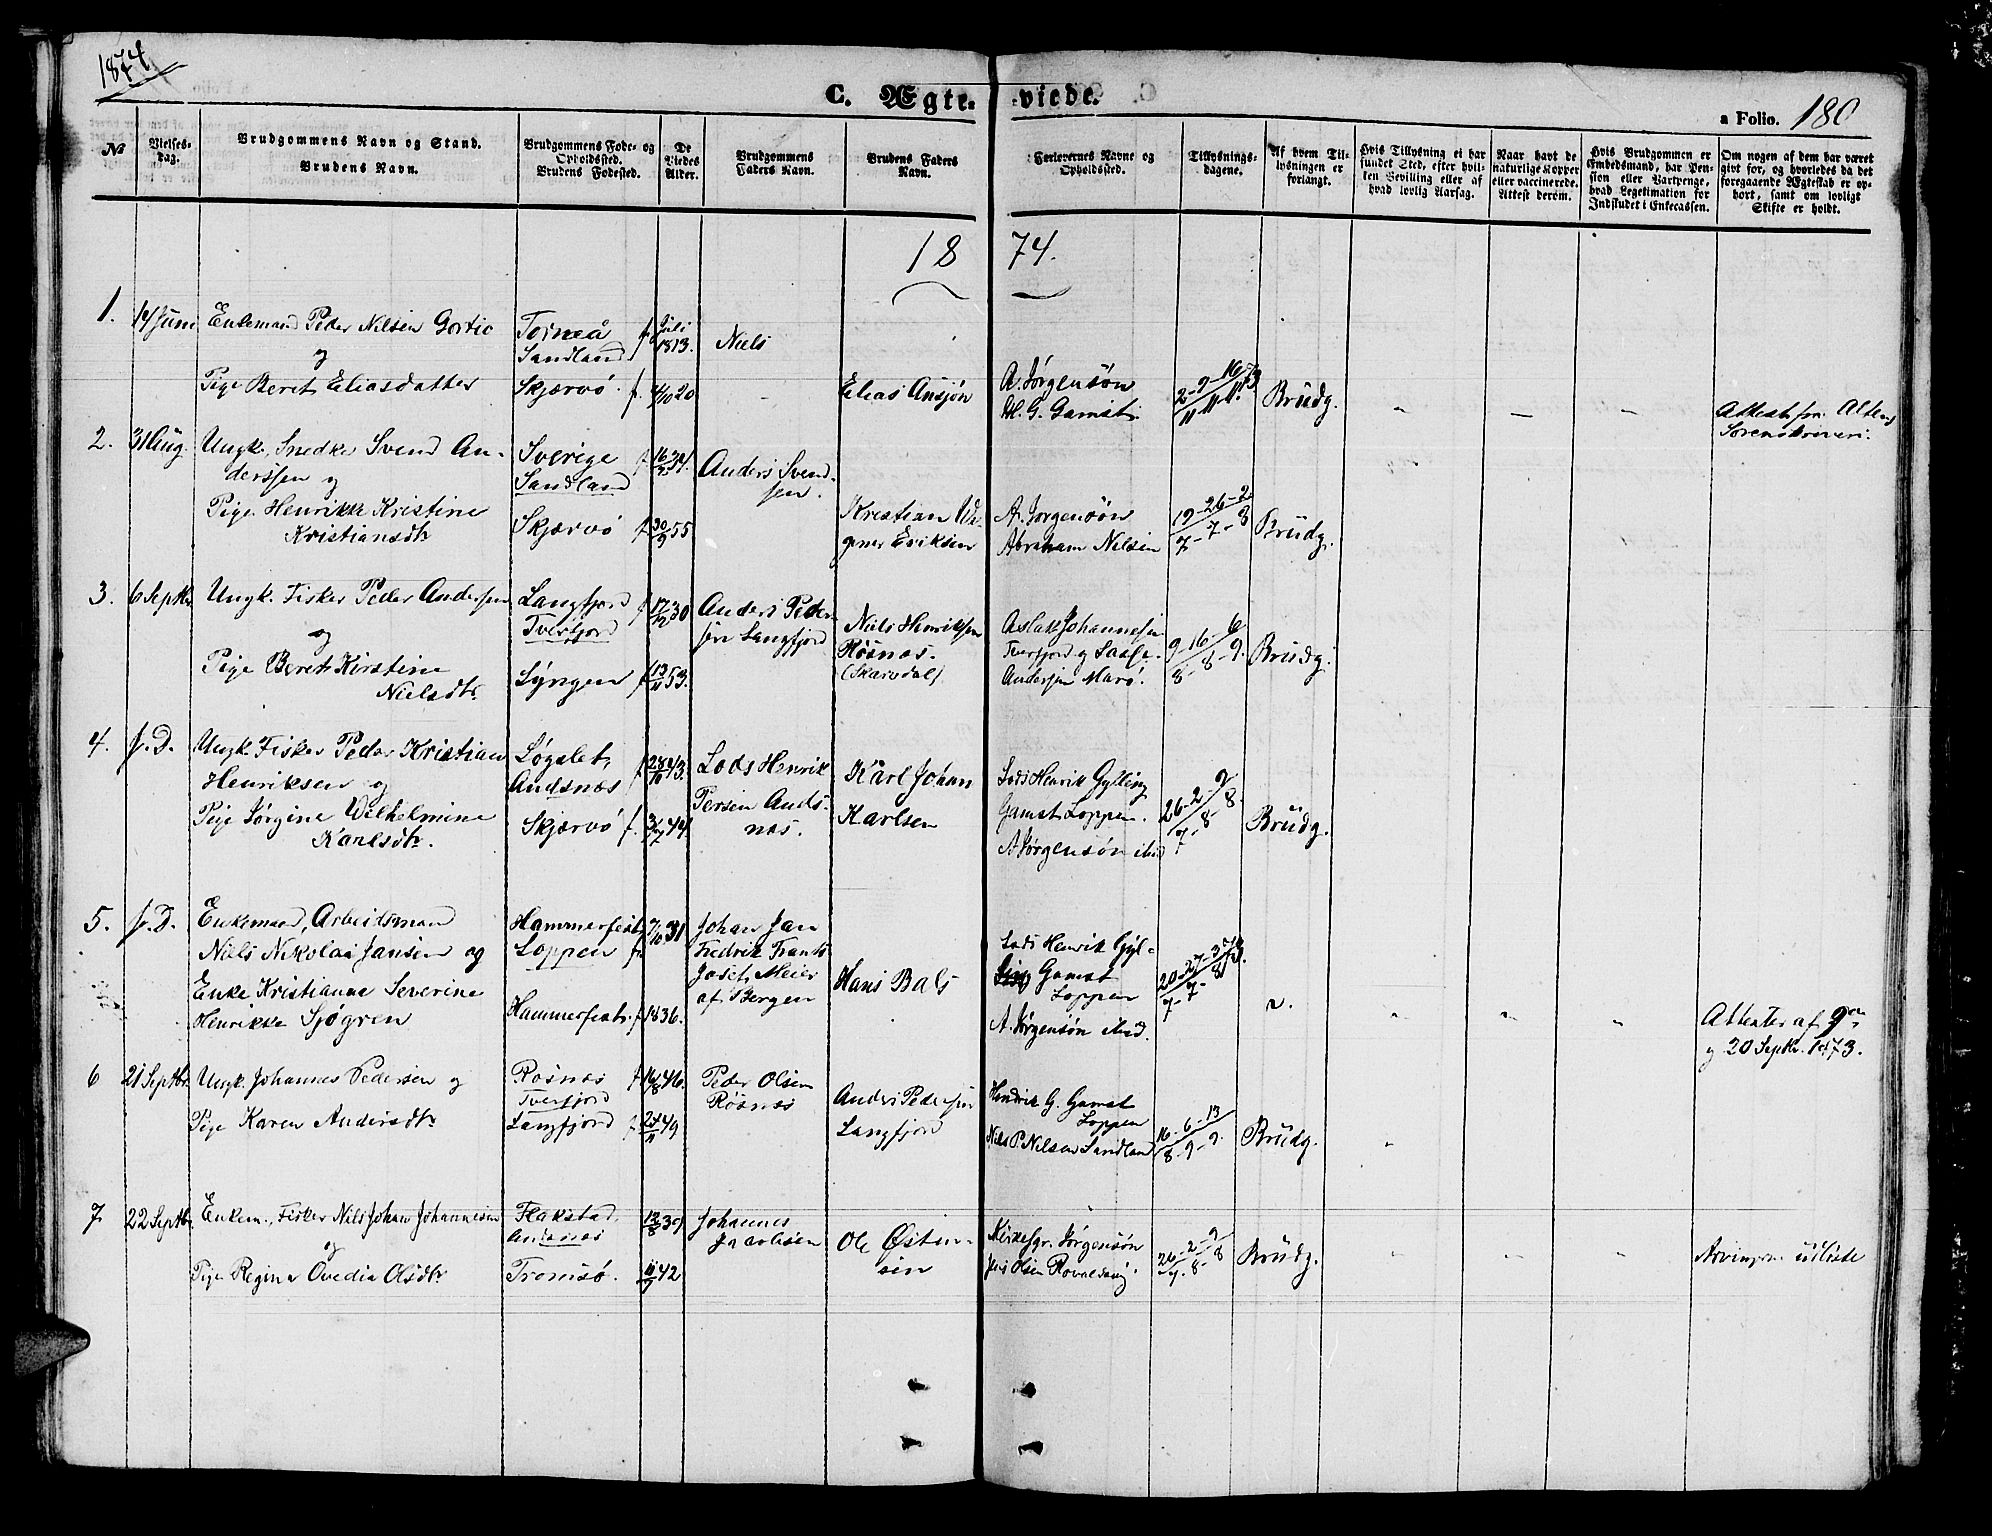 1874
C. Ægte-
-viede.
a Folio. 180
No
Vielses-
dag.
Brudgommens Navn og Stand.
Brudens Navn.
Brudgommens Føde- og
Opholdssted.
Brudens Fødested.
De
Viedes
Alder.
Brudgommens
Faders Navn.
Brudens Faders
Navn.
Forlovernes Navne og
Opholdssted.
Tillysnings-
dagene.
Af hvem Til-
lysningen er
forlangt.
Hvis Tillysning ei har
fundet Sted, efter hvil-
ken Bevilling eller af
hvad lovlig Aarsag.
Naar havt de
naturlige Kopper
eller vaccinerede.
Attest derom.
Hvis Brudgommen er
Embedsmand, har Pen-
sion eller Vartpenge,
hvad Legitimation for
Indskudet i Enkecassen.
Om nogen af dem har været
gift før, og hvorledes da det
foregaaende Ægteskab er op-
hørt, samt om lovligt
Skifte er holdt.
18 74.
1. 14 Juni
Enkemand Peder Nilsen Gortic
og
Pige Beret Eliasdatter
Torneå
Sandland
Skjærvö. f.
f. Juli
1813.
4/10 20
Niels
Elias Ansjön
A. Jörgensön
H. G. Gamst
2-9-16/11-11-11 73
Brudg.
Attest fra Altens
Sorenskriveri.
2. 31 Aug.
Ungk. Snedker Svend An-
derssen og
Pige Henrikke Kristine
Kristiansdtr
Sverige
Sandland
Skjærvö
f. 30/9 55
Anders Svend-
sen.
Kristian We-
gener Eriksen
A. Jörgensön
Abraham Nilsen
19-26-2/7-7-8
Brudg.
3. 6 Septbr
Ungk. Fisker Peder Andersen
og
Pige Beret Kirstine
Nielsdtr.
Langfjord
Tverfjord
Lyngen
f. 17/12 30
f. 13/11 53.
Anders Peder
sen Langfjord
Niels Henriksen
Rösnæs.
(Skarvdal)
Aslak Johannesen
Tverfjord og
Andersen Marö.
9-16-6/8-8-9.
Brudg.
4. s. D.
Ungk. Fisker Peder Kristian
Henriksen og
Pige Jörgine Wilhelmine
Karlsdtr.
Lögslet,
Andsnæs
Skjærvö f.
28/10 43.
3/7 44.
Lods Henrik
Persen Ands-
næs.
Karl Johan
Karlsen
Lods Henrik Gylling
Gamst Loppen.
A. Jörgensön ibid
26-2-9/7-8-8.
Brudg.
5. s. D.
Enkemand, Arbeidsmand
Niels Nikolai Jansen og
Enke Kristianne Severine
Henrikke Sjögren
Hammerfest
Loppen f.
Hammerfest. f.
7/10 31
1836.
Johan Jan
Fredrik Frants
Josef Meier
af Bergen
Hans Bals
Lods Henrik Gyl-
ling Gamst
Loppen
A. Jörgensön ibid.
20-27-3/7-7-8 73.
Attester af 9de
og 20 Septbr. 1873.
6 21 Septbr.
Ungk. Johannes Pedersen og
Pige Karen Andersdtr
Rösnæs
Tverfjord
Langfjord
f. 16/8 46.
f. 24/11 49
Peder Olsen
Rösnæs
Anders Pedersen
Langfjord
Hendrik G. Gamst
Loppen
Nils P. Nilsen Sandland
16-6-13/8-9-9.
Brudg.
7 22 Septbr.
Enkem., Fisker Nils Johan Johannesen
og
Pige Regina Ovedia Olsdtr
Flakstad,
Andsnæs
Tromsö.
12/8 39.
11/7 42
Johannes
Jacobsen
Ole Østen-
sen
Kirkesgr. Jörgensön
Jens Olsen
26-2-9/7-8-8
Brudg.
Arvingerne udlöste